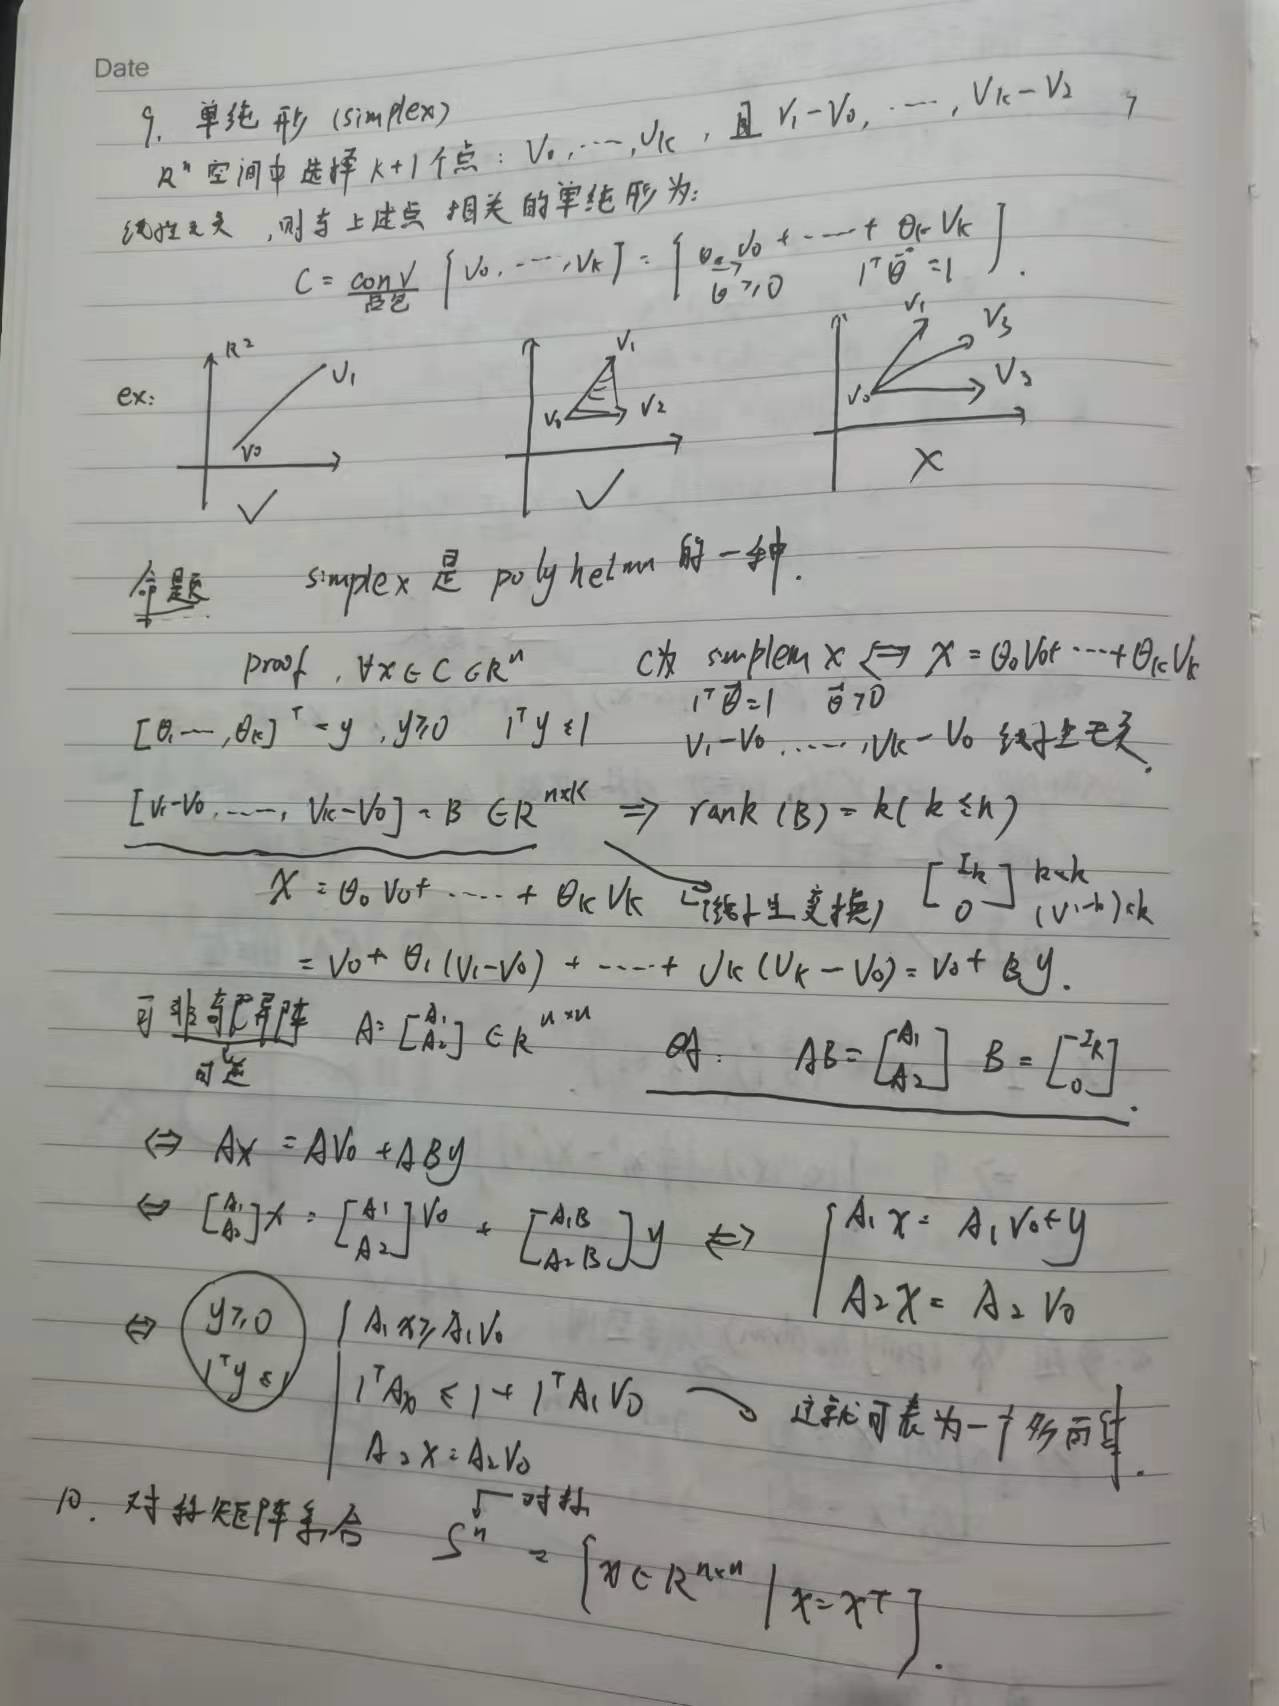 Date
9. 单纯形 (simplex)
R^n 空间中选择 k+1 个点: V0, ..., Vk , 且 V1-V0, ...., Vk-V2
线性无关 , 则与上述点 相关的单纯形为:
C = conv {V0, ..., Vk} = { θ0 V0 + ..... + θk Vk } .
凸包 θ ≥ 0 1^T θ = 1
ex: R² V1 V0 ✓
V1 V0 V2 ✓
V1 V3 V0 V2 X
命题 simplex 是 的一种.
proof , ∀x ∈ C ∈ R^n C为 x ⇔ x = θ0V0+ ....+ θkVk
1^T θ = 1 θ ≥ 0
[θ1 ..., θk]^T = y , y ≥ 0 1^T y ≤ 1
V1-V0 ....., Vk-V0 线性无关.
[V1-V0, ....., Vk-V0] = B ∈ R^{n×k} ⇒ rank (B) = k ( k ≤ n )
x = θ0 V0 + ..... + θk Vk (线性变换) [Ik 0] k×k
= V0 + θ1 (V1-V0) + .....+ (Vk-V0) = V0 + By.
可 非奇异矩阵 A = [A1 A2] ∈ R^{n×n} AB = [A1 A2] B = [Ik 0] .
可逆
⇔ Ax = AV0 + ABy
⇔ [A1 A2] x = [A1 A2] V0 + [A1B A2B] y ⇔ { A1 x = A1 V0 + y
A2 x = A2 V0
⇔ y ≥ 0 { A1 x ≥ A1 V0
1^T y ≤ 1 1^T Ax ≤ 1 + 1^T A1 V0 → 这就可表为一个多面体.
A2 x = A2 V0
对称
10. 对称矩阵集合 S^n = { x ∈ R^{n×n} | x = x^T } .